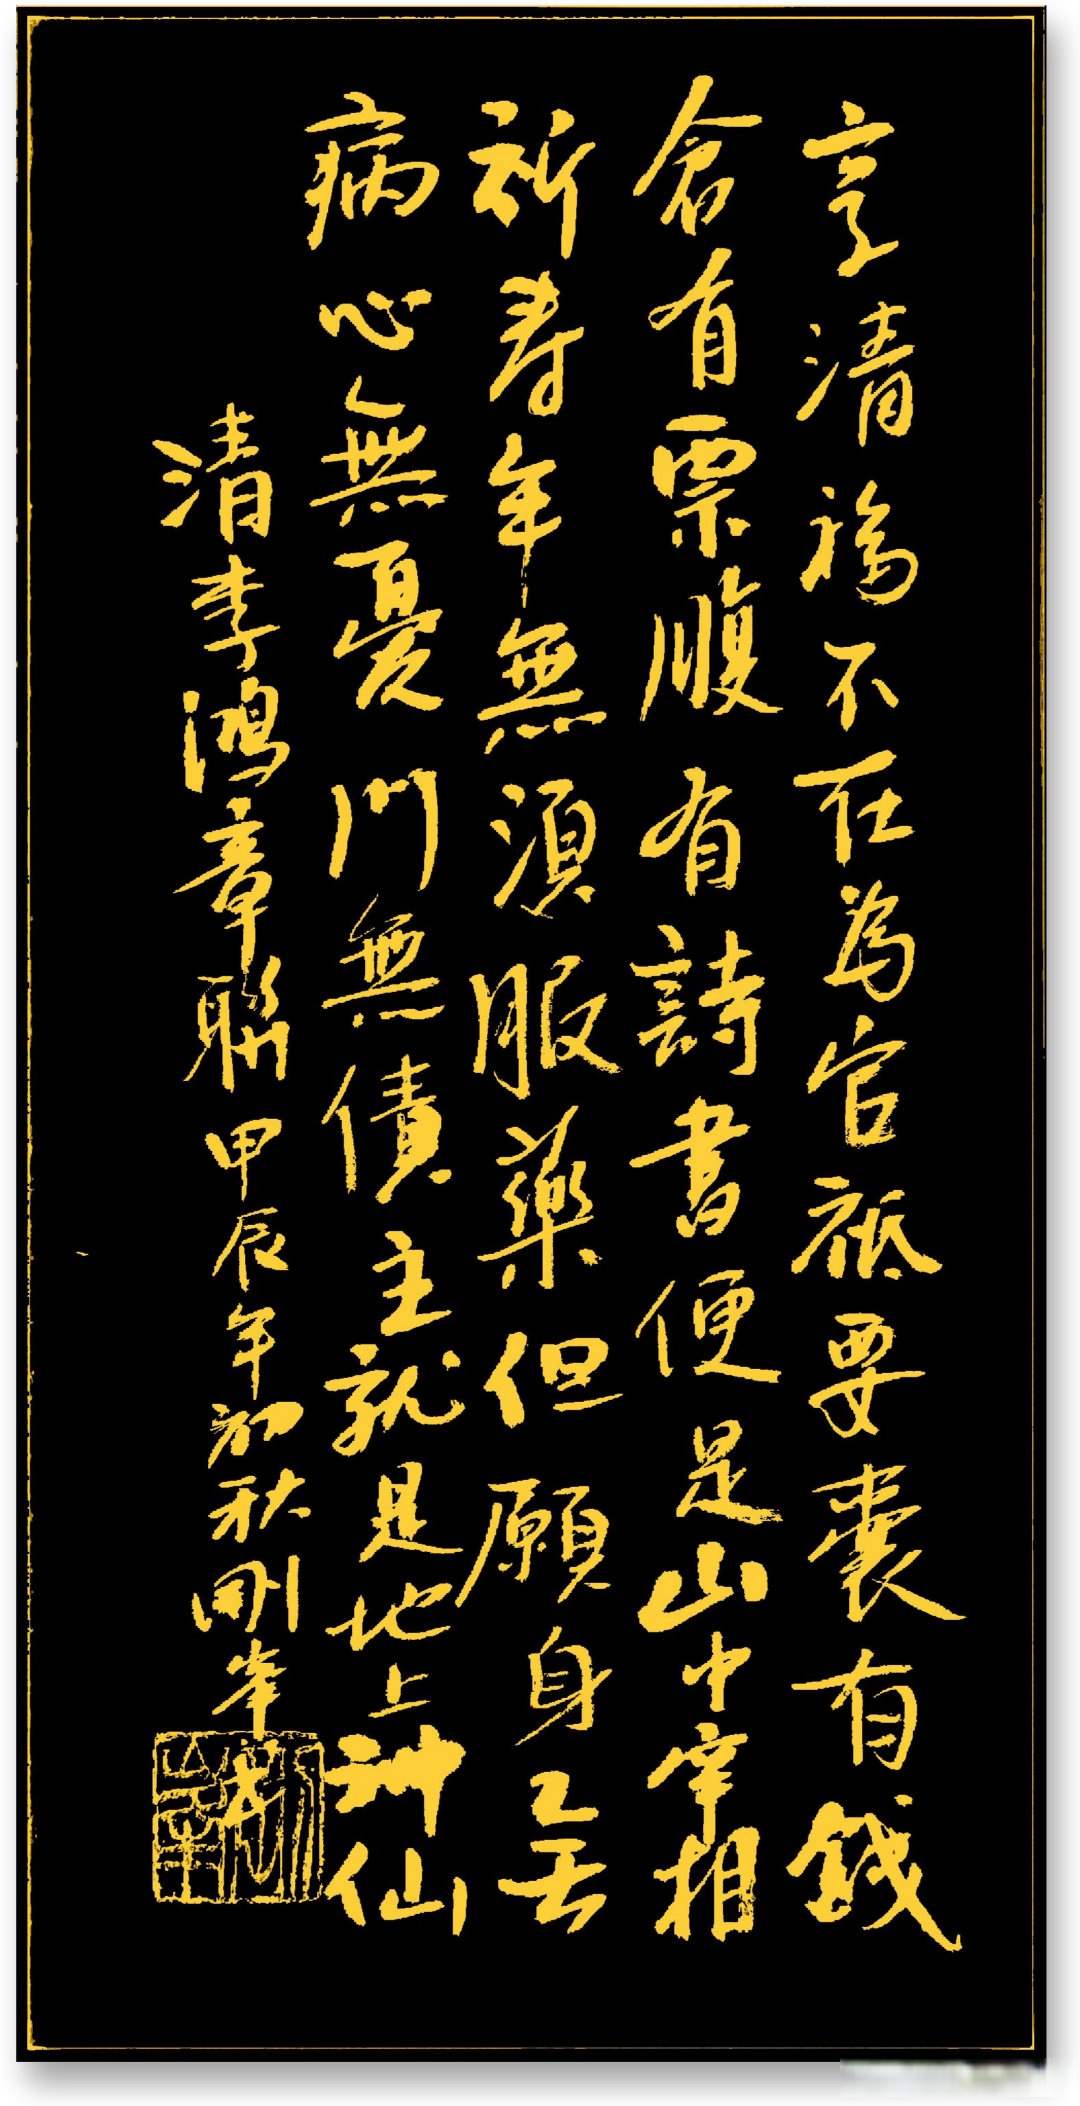 享清福不在為官祗要囊有錢
倉有票腹有詩書便是山中宰相
祈寿年無須服藥但願身無
病心無憂門無債主就是地上神仙
清李鴻章聯甲辰年初秋剛峯书